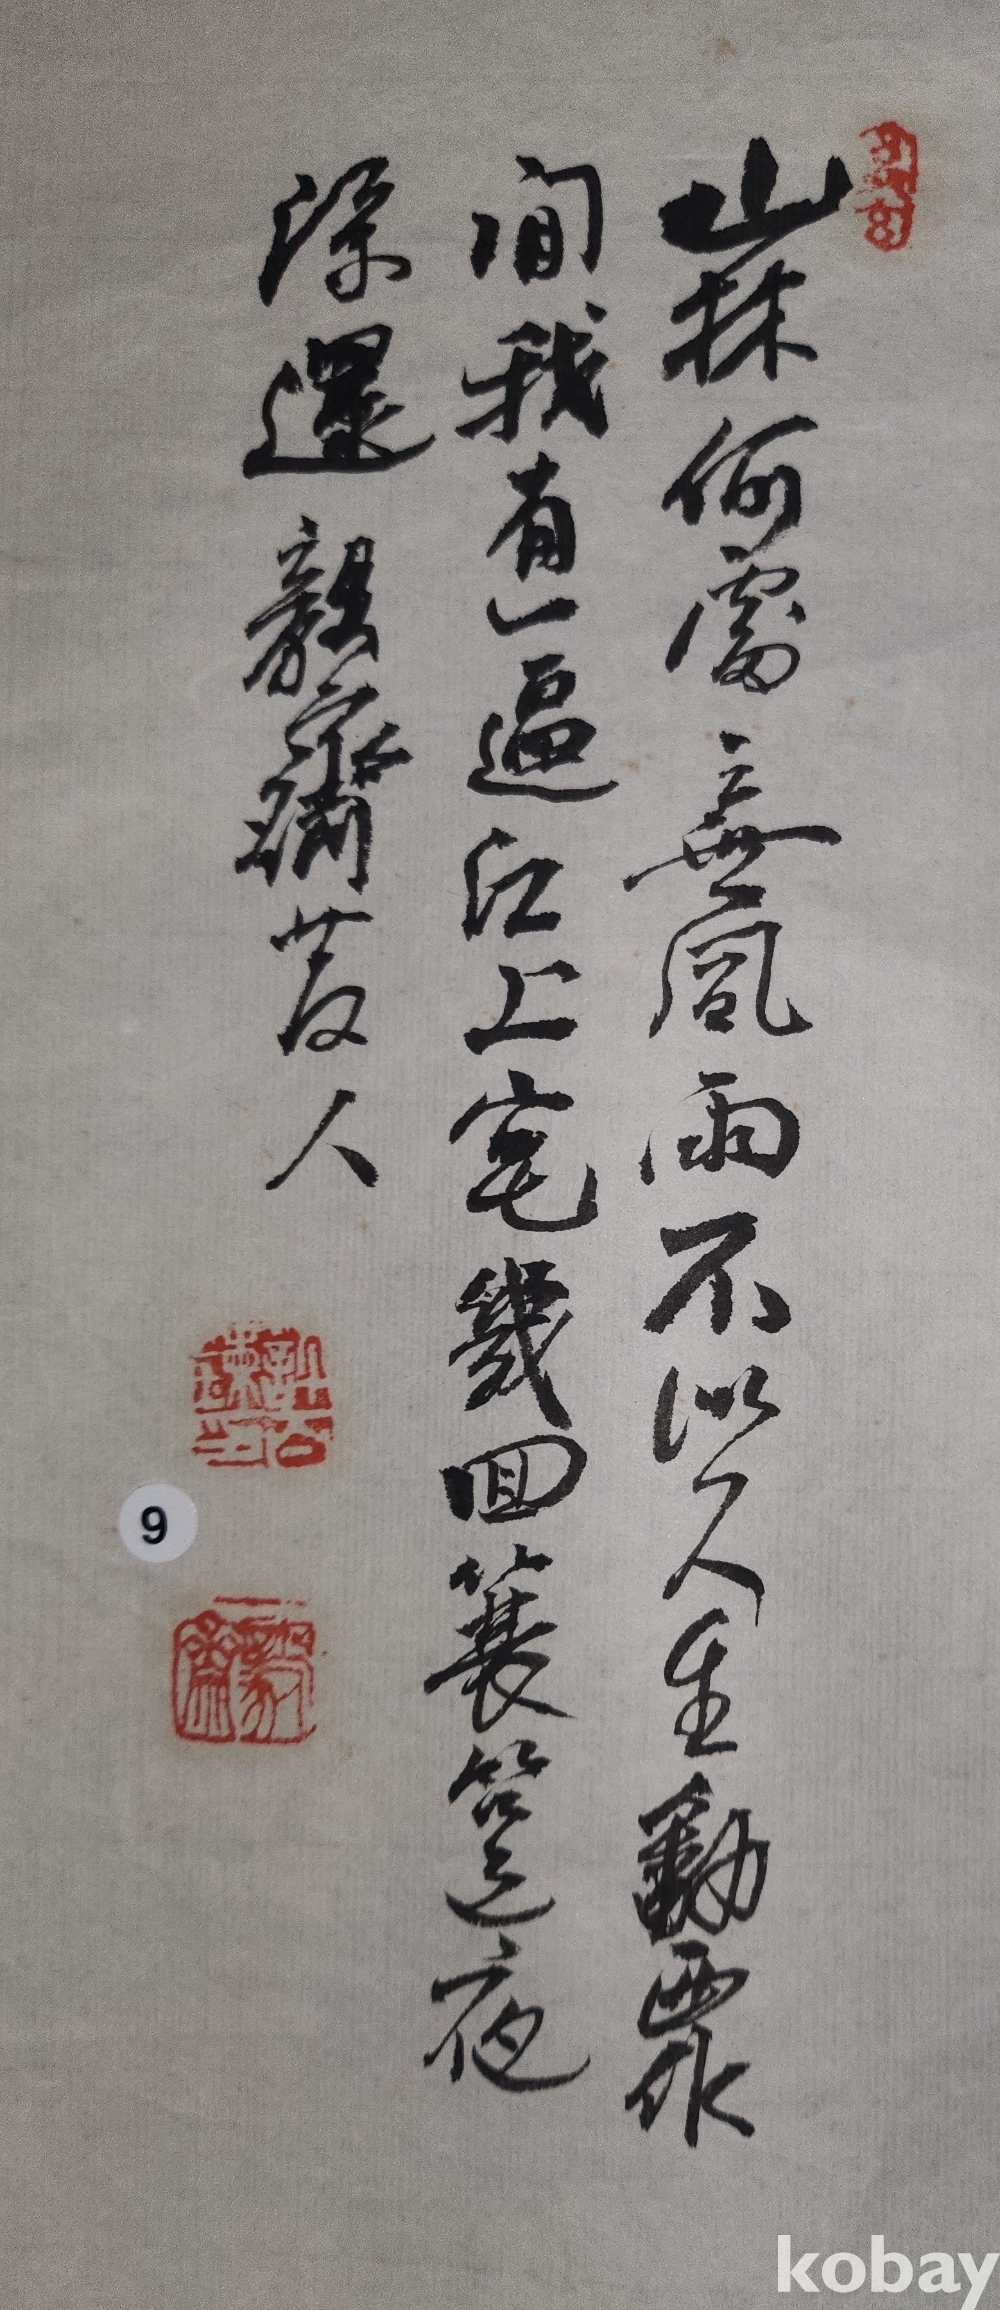 山林何處無風雨不似人生動要作
間我有一區江上宅幾回簑笠夜
深還 毅齋老人
9
kobay